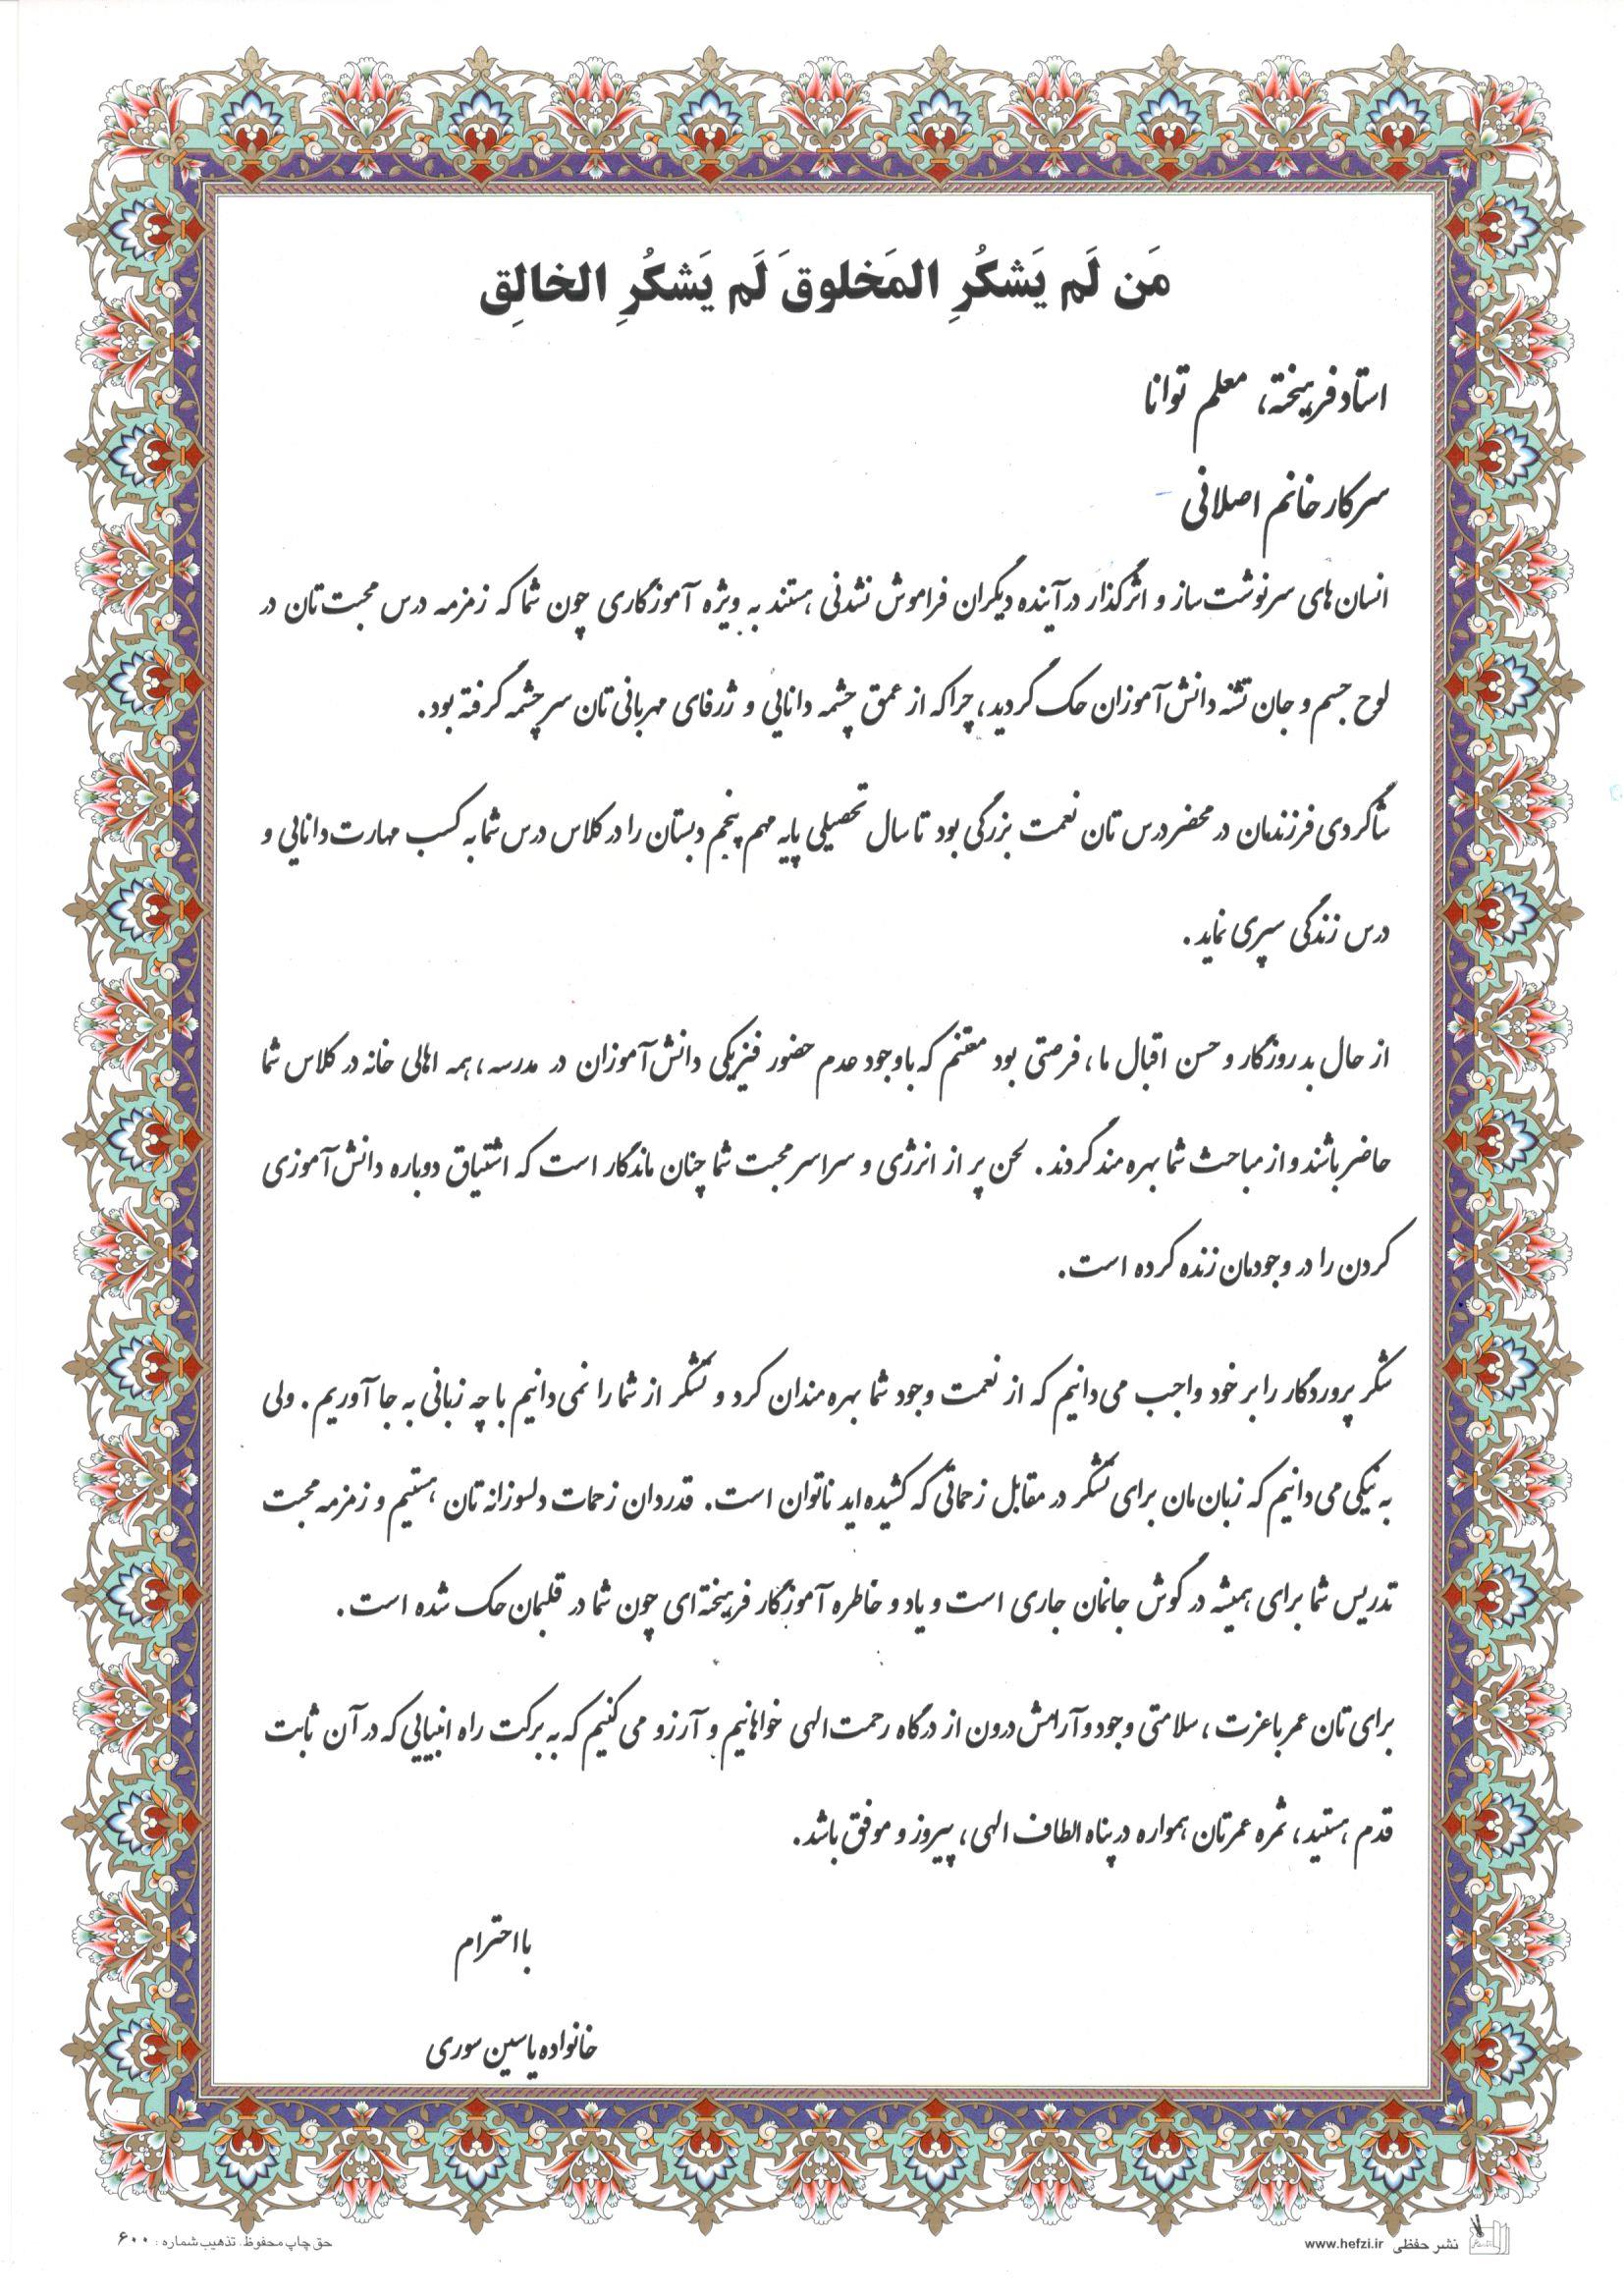 مَن لَم یَشکُرِ المَخلوقَ لَم یَشکُرِ الخالِق
استاد فرهیخته، معلم توانا
سرکار خانم اصلانی
انسان‌های سرنوشت‌ساز و اثرگذار در آینده دیگران فراموش نشدنی هستند به ویژه آموزگاری چون شما که زمزمه درس محبت‌تان در
لوح جسم و جان تشنه دانش‌آموزان حک گردید، چراکه از عمق چشمه دانایی و ژرفای مهربانی‌تان سرچشمه گرفته بود.
شاگردی فرزندمان در محضر درس تان نعمت بزرگی بود تا سال تحصیلی پایه مهم پنجم دبستان را در کلاس درس شما به کسب مهارت دانایی و
درس زندگی سپری نماید.
از حال بد روزگار و حسن اقبال ما، فرصتی بود مغتنم که با وجود عدم حضور فیزیکی دانش‌آموزان در مدرسه، همه اهالی خانه در کلاس شما
حاضر باشند و از مباحث شما بهره‌مند گردند. لحن پر از انرژی و سراسر محبت شما چنان ماندگار است که اشتیاق دوباره دانش‌آموزی
کردن را در وجودمان زنده کرده است.
شکر پروردگار را بر خود واجب می‌دانیم که از نعمت وجود شما بهره‌مندان کرد و تشکر از شما را نمی‌دانیم با چه زبانی به جا آوریم. ولی
به نیکی می‌دانیم که زبان‌مان برای تشکر در مقابل زحماتی که کشیده‌اید ناتوان است. قدردان زحمات دلسوزانه‌تان هستیم و زمزمه محبت
تدریس شما برای همیشه در گوش جانمان جاری است و یاد و خاطره آموزگار فرهیخته‌ای چون شما در قلبمان حک شده است.
برای‌تان عمر باعزت، سلامتی وجود و آرامش درون از درگاه رحمت الهی خواهانیم و آرزو می‌کنیم که به برکت راه انبیایی که در آن ثابت
قدم هستید، ثمره عمرتان همواره در پناه الطاف الهی، پیروز و موفق باشد.
با احترام
خانواده یاسین سوری
حق چاپ محفوظ. تذهیب شماره: ۶۰۰
نشر حفظی www.hefzi.ir